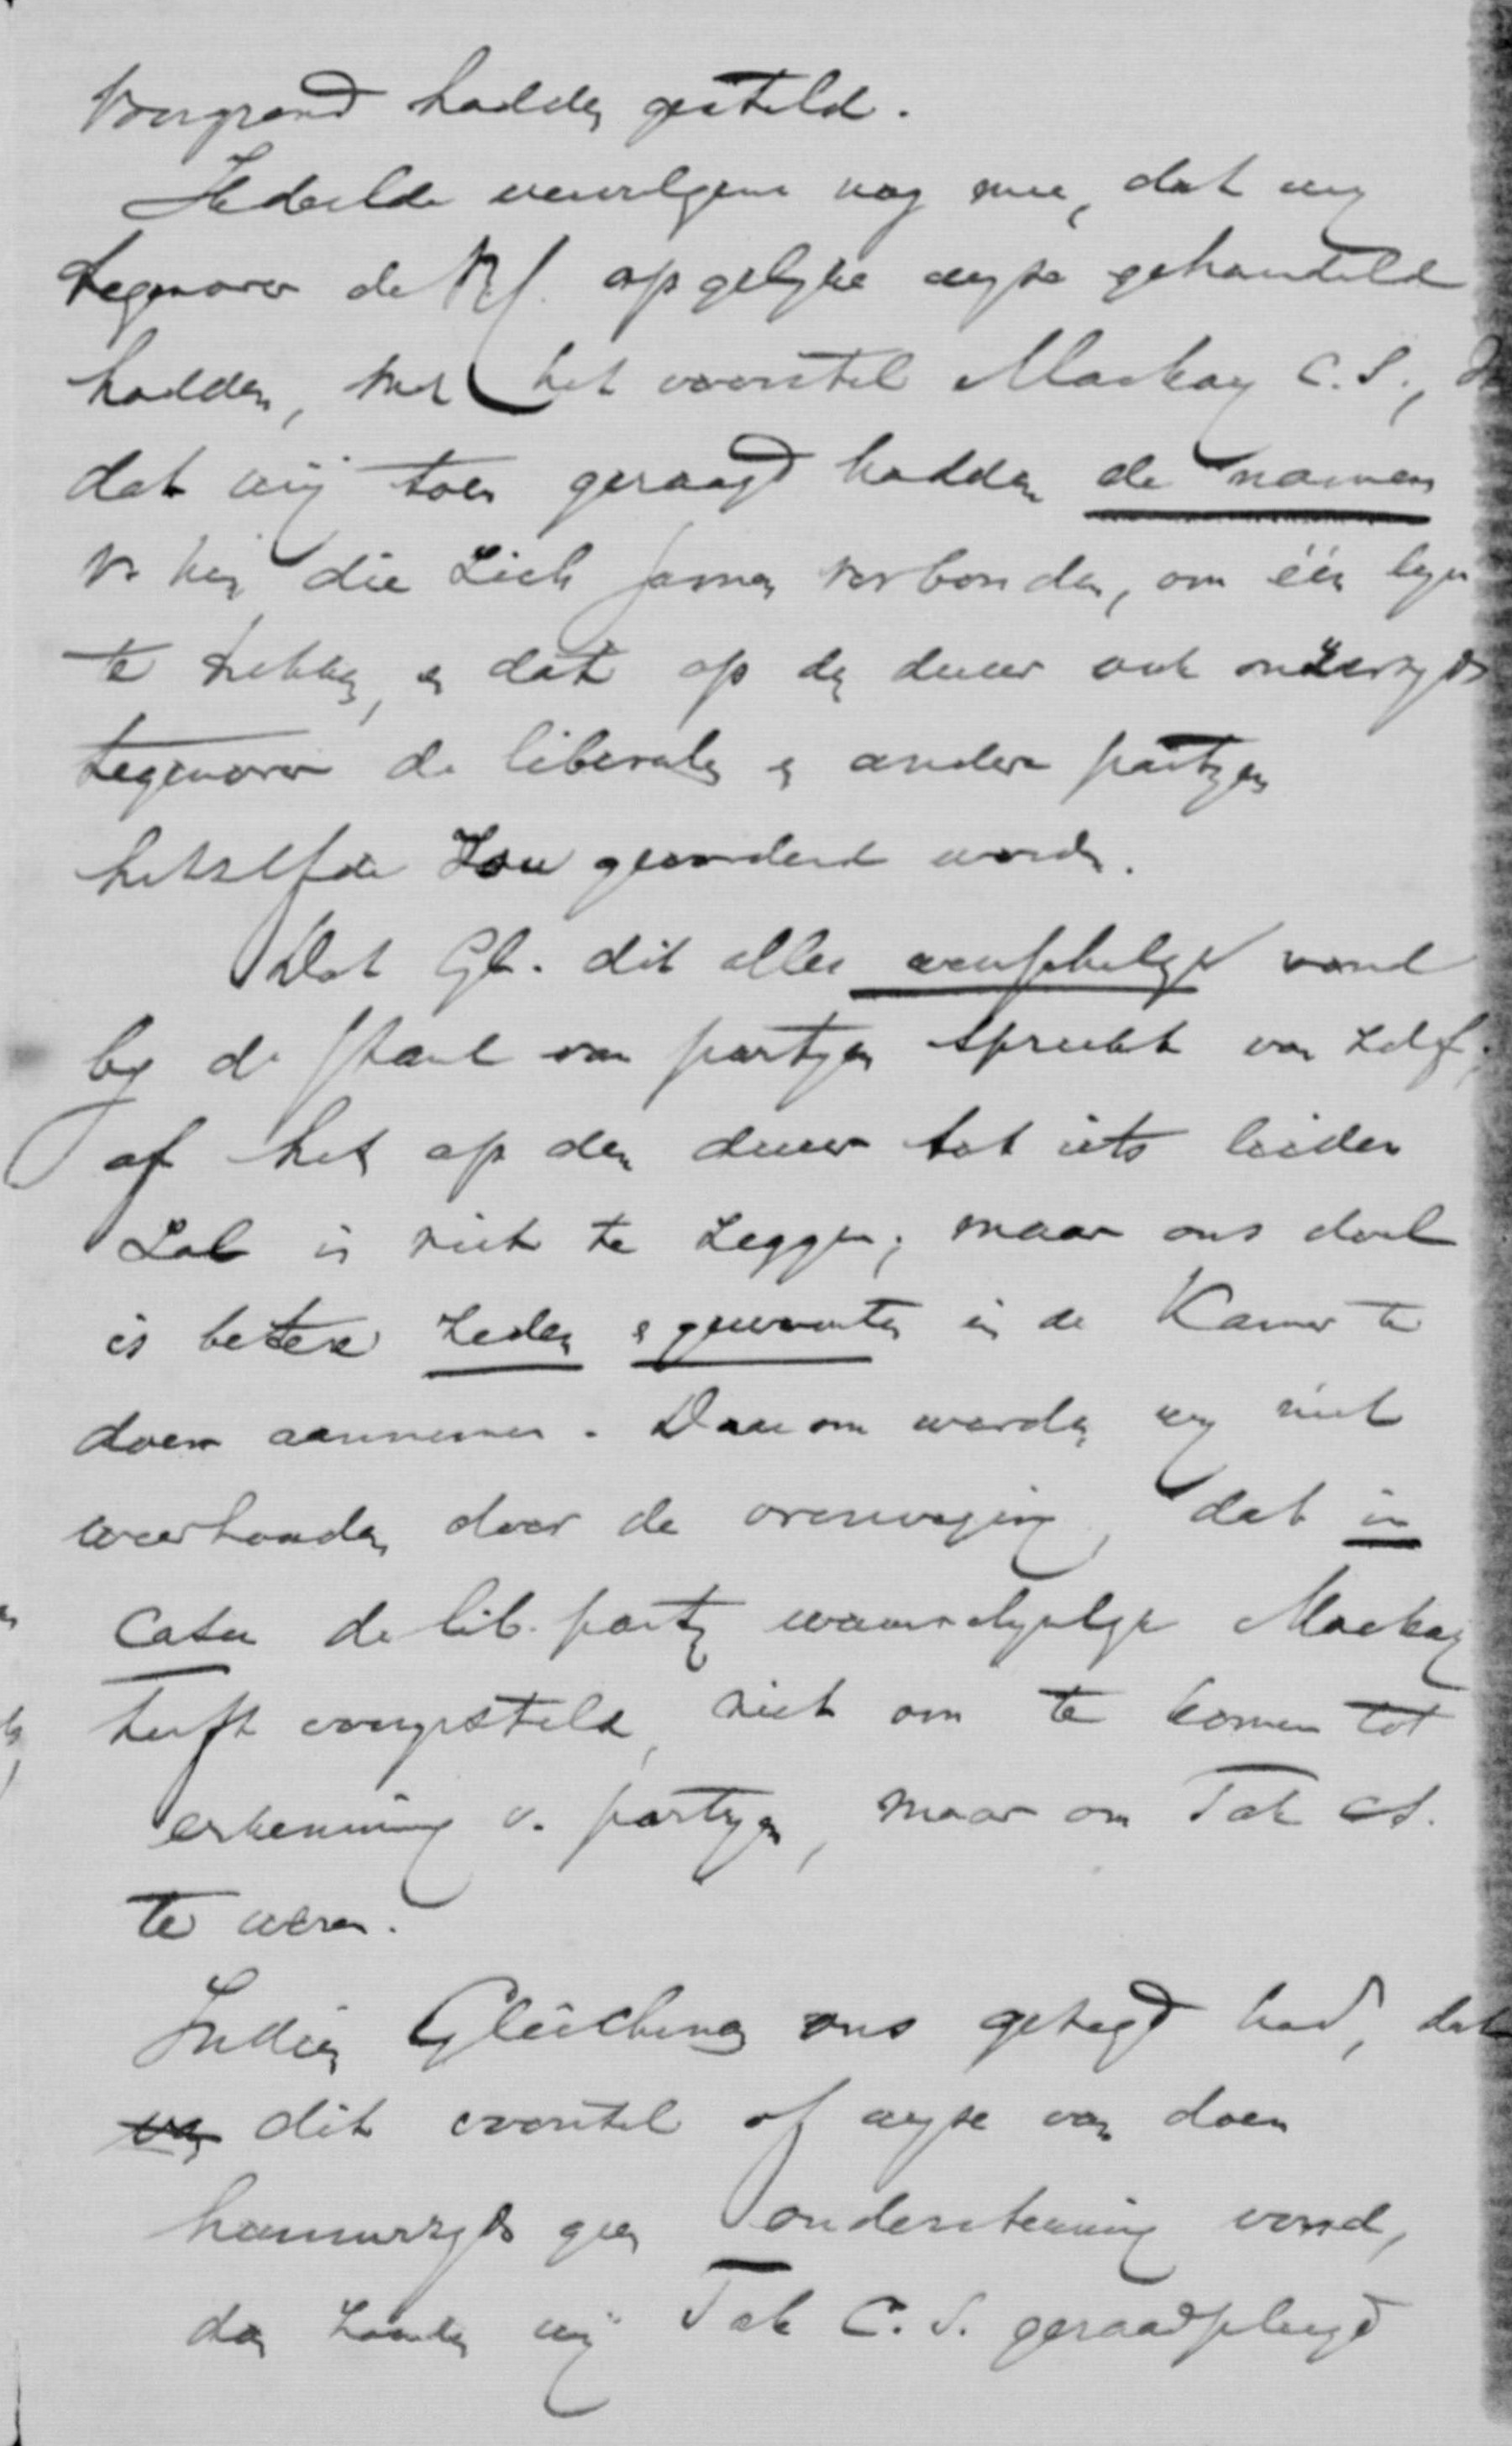 voorgrond hadden gesteld.
Ik deelde vervolgens nog mee, dat wij
tegenover de Rf. op gelijke wijze gehandeld
hadden, met het voorstel Mackay c.s.,
dat wij toen gevraagd hadden de namen
v. hen die zich samen verbonden, om één lijn
te trekken, en dat op den duur ook onzerzijds
tegenover de liberalen en andere partijen
hetzelfde zou gevorderd worden.
Dat Gl. dit alles wenschelijk vond
bij de stand van partijen spreekt van zelf;
of het op den duur tot iets leiden
zal is niet te zeggen; maar ons doel
is betere zeden en gewoonten in de Kamer te
doen aannemen. Daarom werden wij niet
weerhouden door de overweging, dat in
casu de lib. partij waarschijnlijk Mackay
heeft voorgesteld, niet om te komen tot
erkenning v. partijen, maar om Tak cs.
te weren.
Indien Gleichman ons gezegd had, dat
van dit voorstel of wijze van doen
hunnerzijds geen ondersteuning vond,
dan zouden wij Tak C.S. geraadpleegd